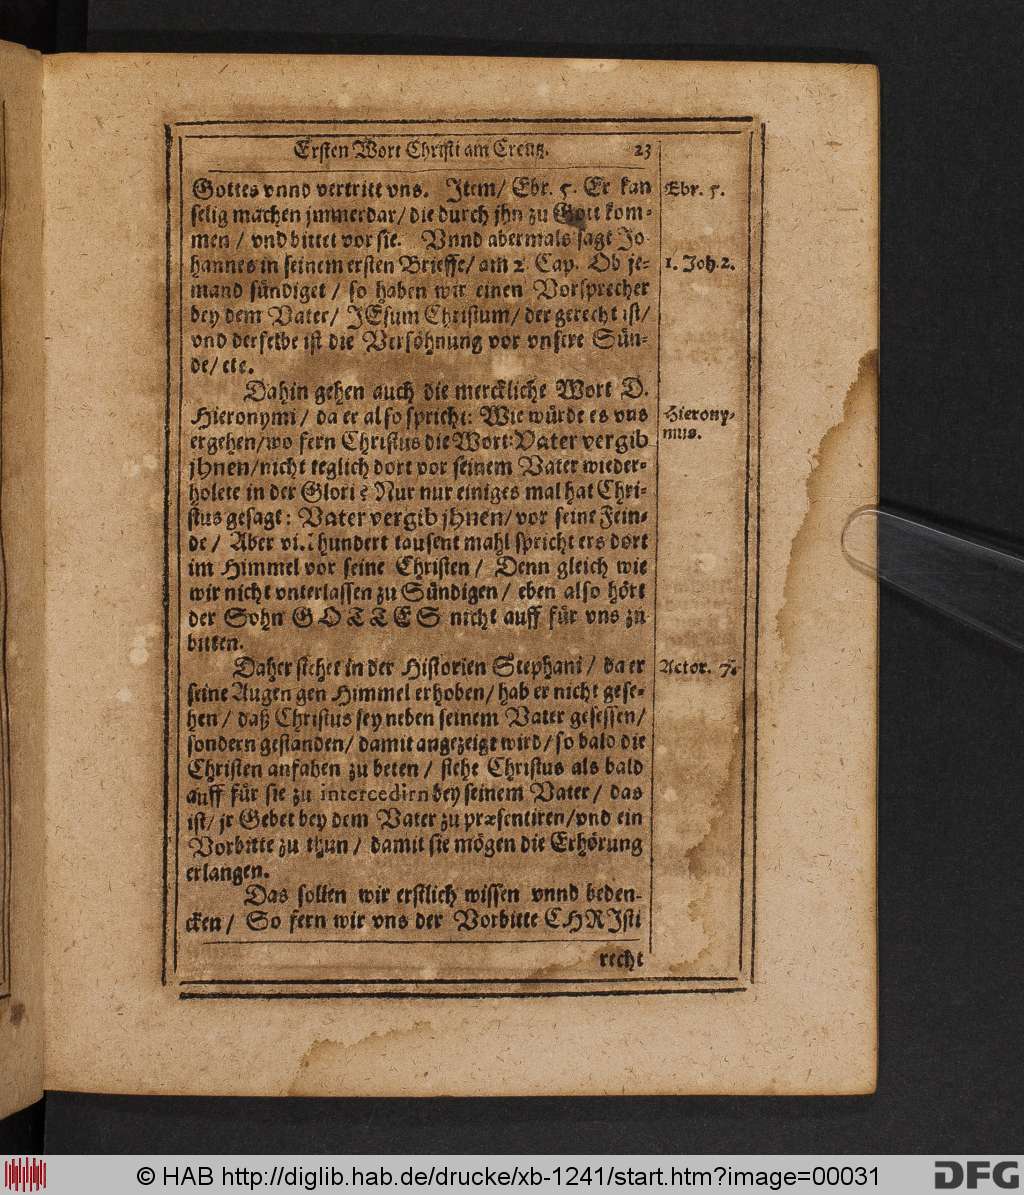 Ersten Wort Christi am Creutz. 23
Gottes vnnd vertritt vns. Item/ Ebr. 5. Er kan
selig machen jmmerdar/ die durch jhn zu Gott kom-
men / vnd bittet vor sie. Vnnd abermals sagt Jo-
hannes in seinem ersten Brieffe/ am 2 Cap. Ob je-
mand sündiget / so haben wir einen Vorsprecher
bey dem Vater/ JEsum Christum/ der gerecht ist/
vnd derselbe ist die Versöhnung vor vnsere Sün-
de/ etc.
Dahin gehen auch die merckliche Wort D.
Hieronymi / da er also spricht: Wie würde es vns
ergehen/wo fern Christus die Wort: Vater vergib
jhnen/nicht teglich dort vor seinem Vater wieder-
holete in der Glori? Nur nur einiges mal hat Chri-
stus gesagt: Vater vergib jhnen/ vor seine Fein-
de / Aber viel hundert tausent mahl spricht ers dort
im Himmel vor seine Christen / Denn gleich wie
wir nicht vnterlassen zu Sündigen / eben also hört
der Sohn GOTTES nicht auff für vns zu
bitten.
Daher stehet in der Historien Stephani / da er
seine Augen gen Himmel erhoben/ hab er nicht gese-
hen / daß Christus sey neben seinem Vater gesessen/
sondern gestanden/ damit angezeigt wird/ so bald die
Christen anfahen zu beten / stehe Christus als bald
auff für sie zu intercedirn bey seinem Vater/ das
ist/ jr Gebet bey dem Vater zu præsentiren/vnd ein
Vorbitte zu thun / damit sie mögen die Erhörung
erlangen.
Das sollen wir erstlich wissen vnnd beden-
cken / So fern wir vns der Vorbitte CHRJsti
recht
Ebr. 5.
1. Joh. 2.
Hierony-
mus.
Actor. 7.
© HAB http://diglib.hab.de/drucke/xb-1241/start.htm?image=00031
DFG